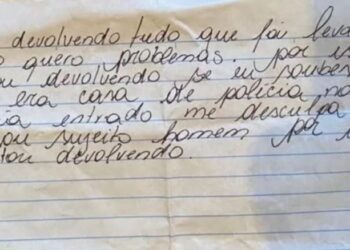 devolvendo tudo que foi leva
quero problemas. por is
ou devolvendo se eu soubes
era casa de polícia não
ia entrado me desculpa
ou sujeito homem por
tou devolvendo.